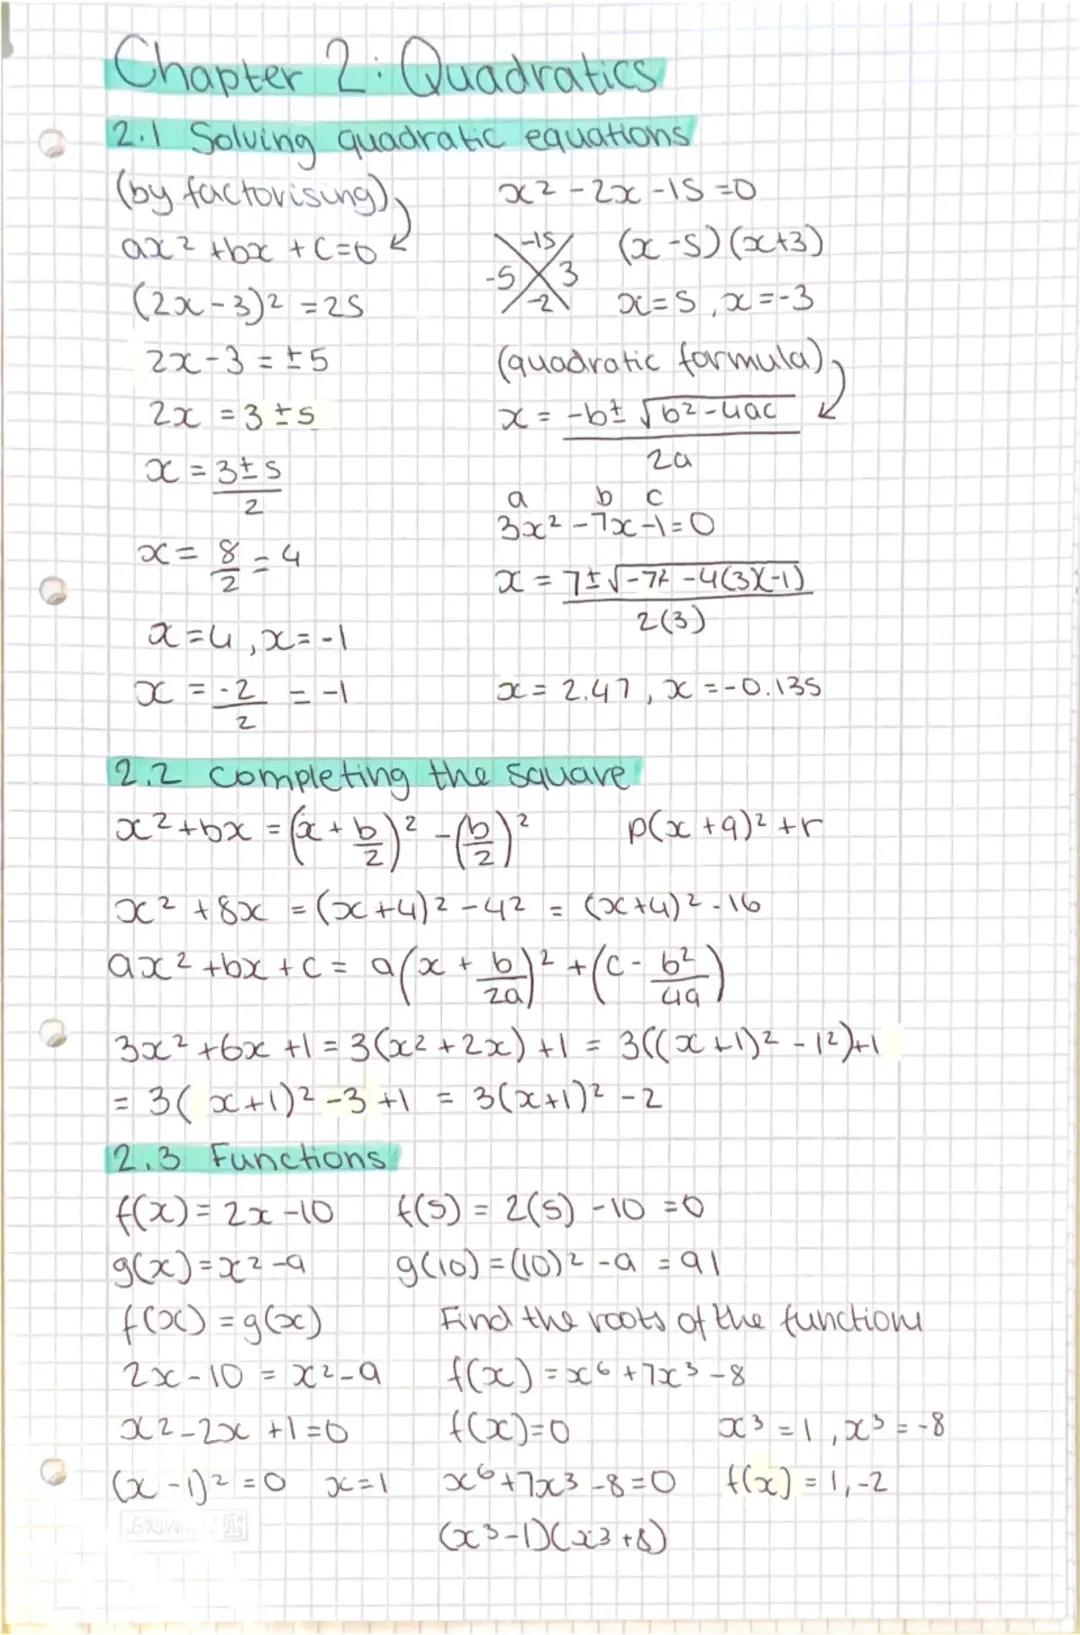 Chapter 2: Quadratics
2.1 Solving quadratic equations
(by factorising)
ax² + bx + c = 0
(2x - 3)² = 25
2x - 3 = ±5
2x = 3 ± 5
x = 3 ± 5 / 2
x = 8/2 = 4
x = 4, x = -1
x = -2/2 = -1
x² - 2x - 15 = 0
-15
-5 3
-2
(x - 5)(x + 3)
x = 5, x = -3
(quadratic formula)
x = -b ± √b² - 4ac / 2a
a b c
3x² - 7x - 1 = 0
x = 7 ± √-7² - 4(3)(-1) / 2(3)
x = 2.47, x = -0.135
2.2 completing the square
x² + bx = (x + b/2)² - (b/2)² p(x + q)² + r
x² + 8x = (x + 4)² - 4² = (x + 4)² - 16
ax² + bx + c = a(x + b/2a)² + (c - b²/4a)
3x² + 6x + 1 = 3(x² + 2x) + 1 = 3((x + 1)² - 1²) + 1
= 3(x + 1)² - 3 + 1 = 3(x + 1)² - 2
2.3 Functions
f(x) = 2x - 10 f(5) = 2(5) - 10 = 0
g(x) = x² - 9 g(10) = (10)² - 9 = 91
f(x) = g(x)
2x - 10 = x² - 9
x² - 2x + 1 = 0
(x - 1)² = 0 x = 1
Find the roots of the functions
f(x) = x⁶ + 7x³ - 8
f(x) = 0
x⁶ + 7x³ - 8 = 0
(x³ - 1)(x³ + 8)
x³ = 1, x³ = -8
f(x) = 1, -2